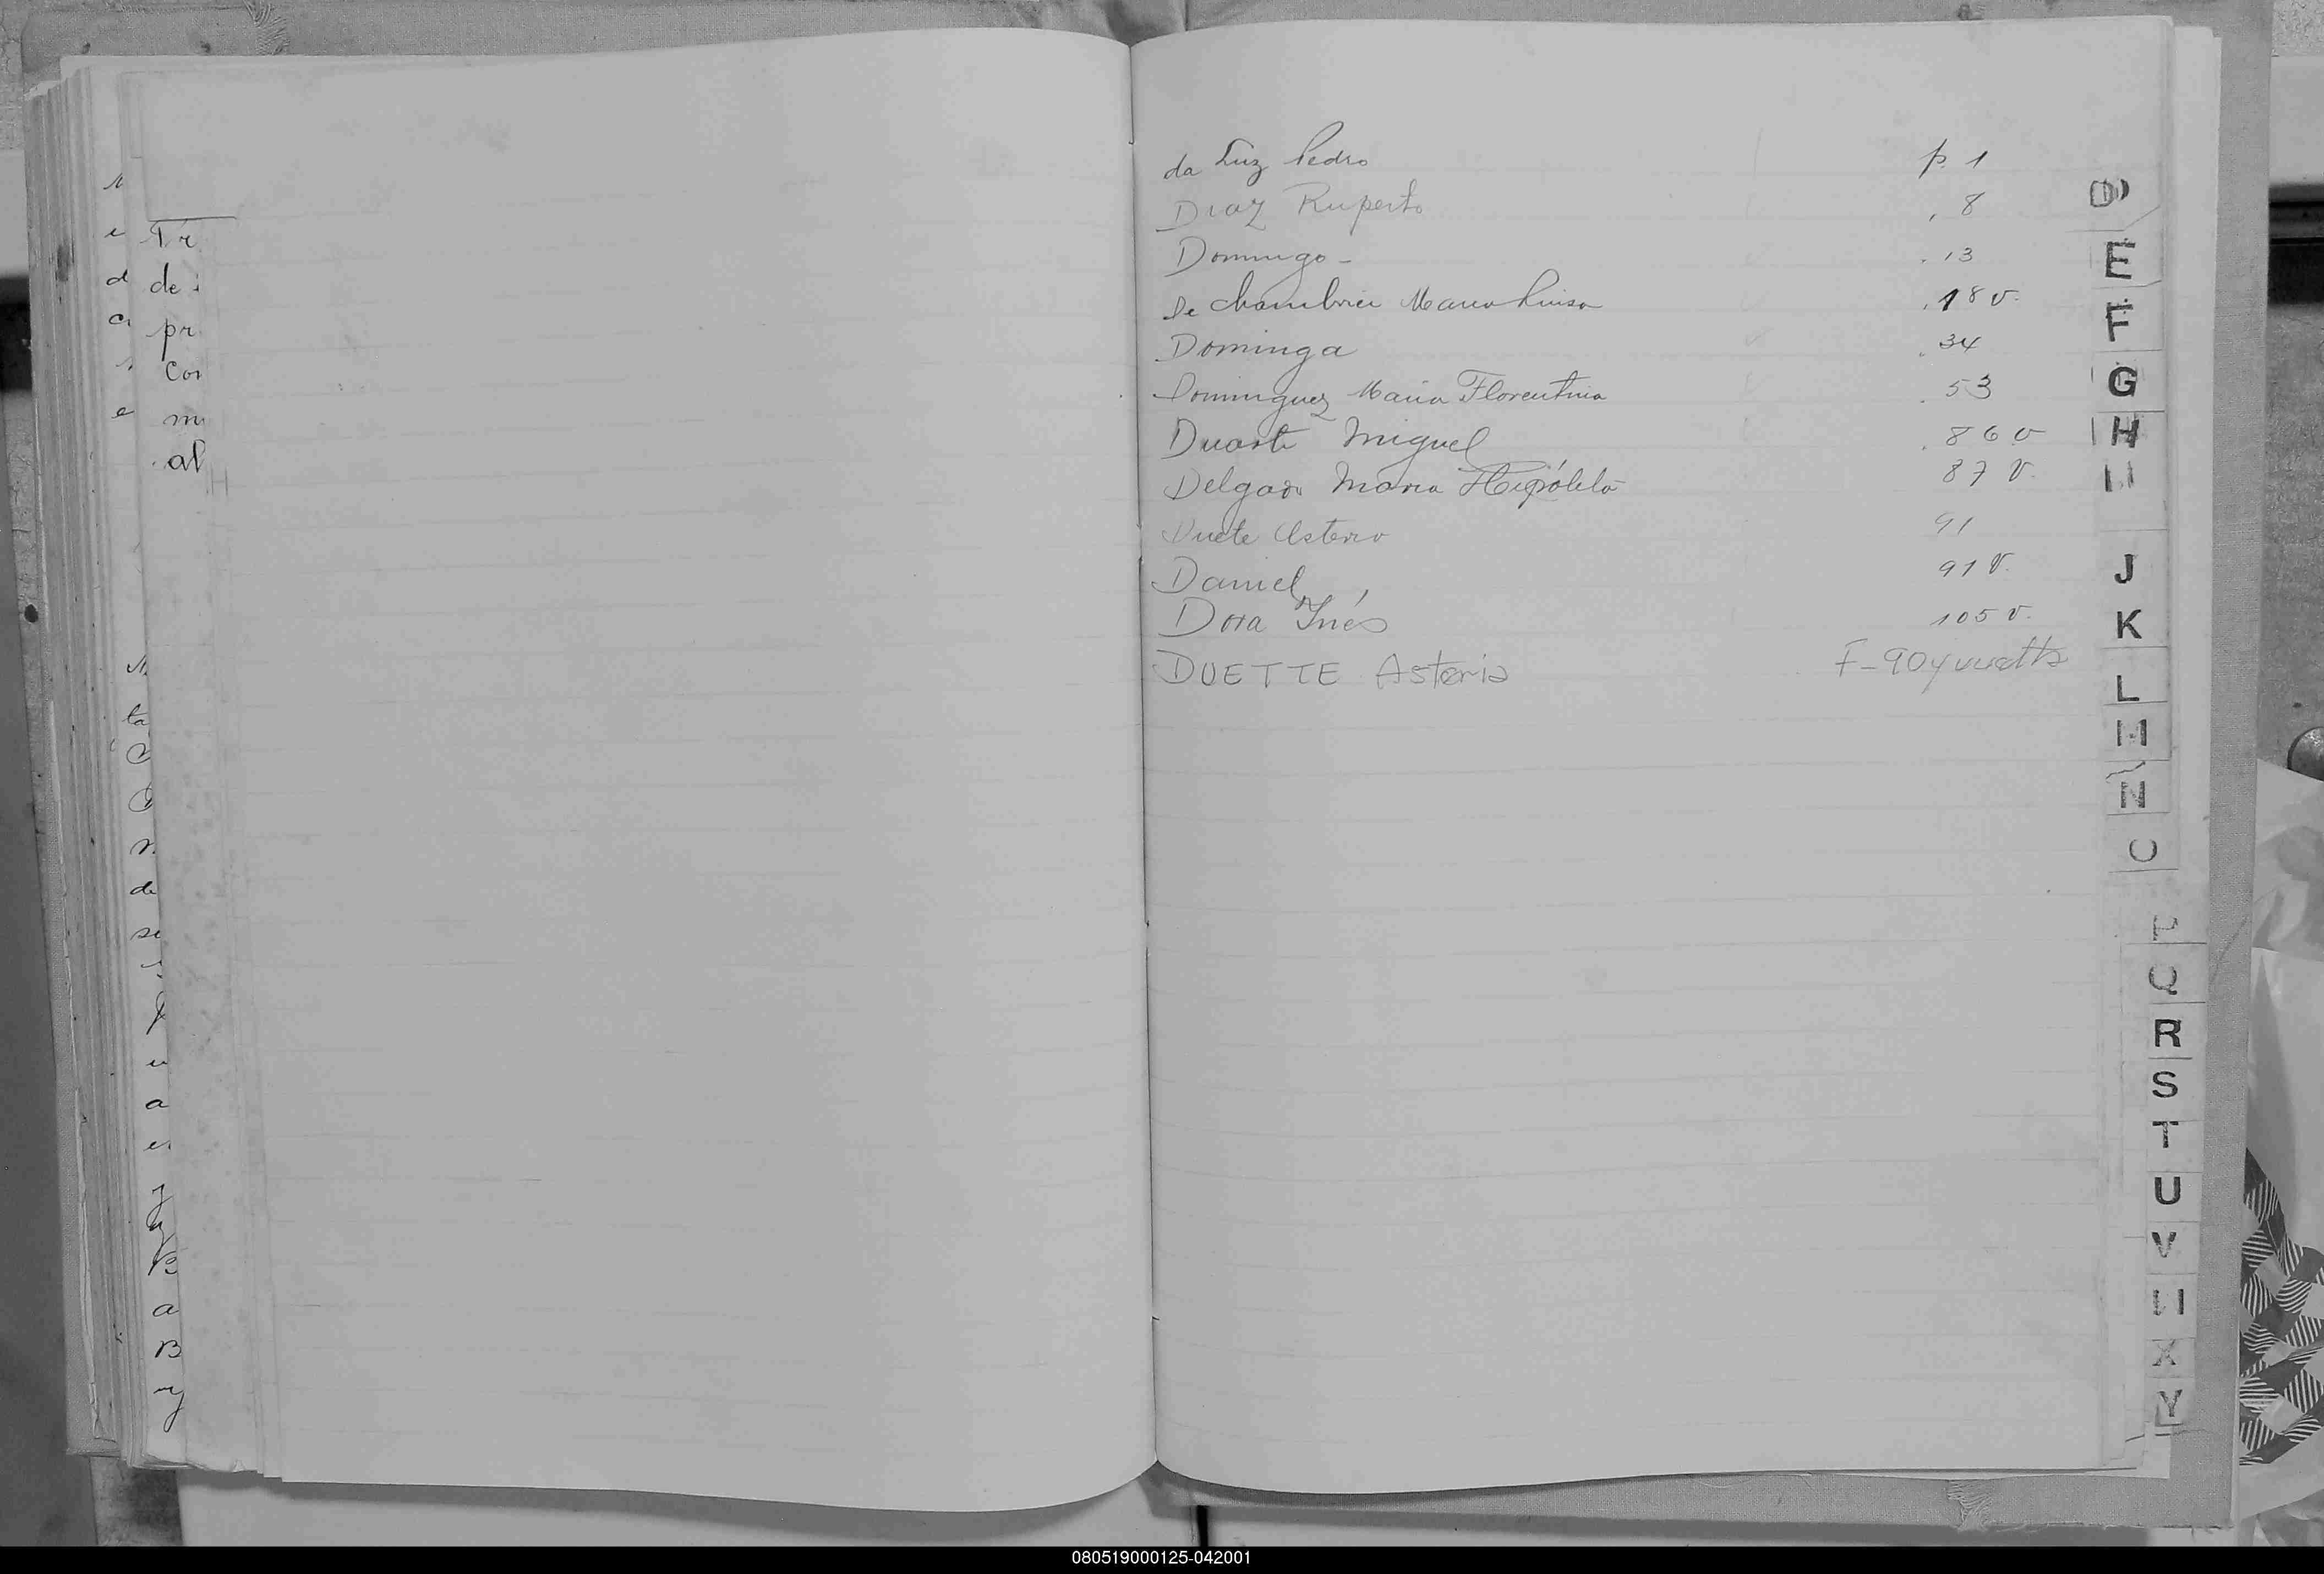 da Luz Pedro p. 1
Diaz Ruperto . 8
Domingo - . 13
De Chambrier Maria Luisa . 18 v.
Dominga . 34
Dominguez Maria Florentina . 53
Duarte Miguel . 86 v
Delgado Maria Hipólita 87 v.
Duete Asterio 91
Daniel 91 v.
Dora Inés 105 v.
DUETTE Asterio F-90 y vuelta
Tr
de
pr
Con
m
al
D
E
F
G
H
J
K
L
M
N
O
P
Q
R
S
T
U
V
X
Y
080519000125-042001